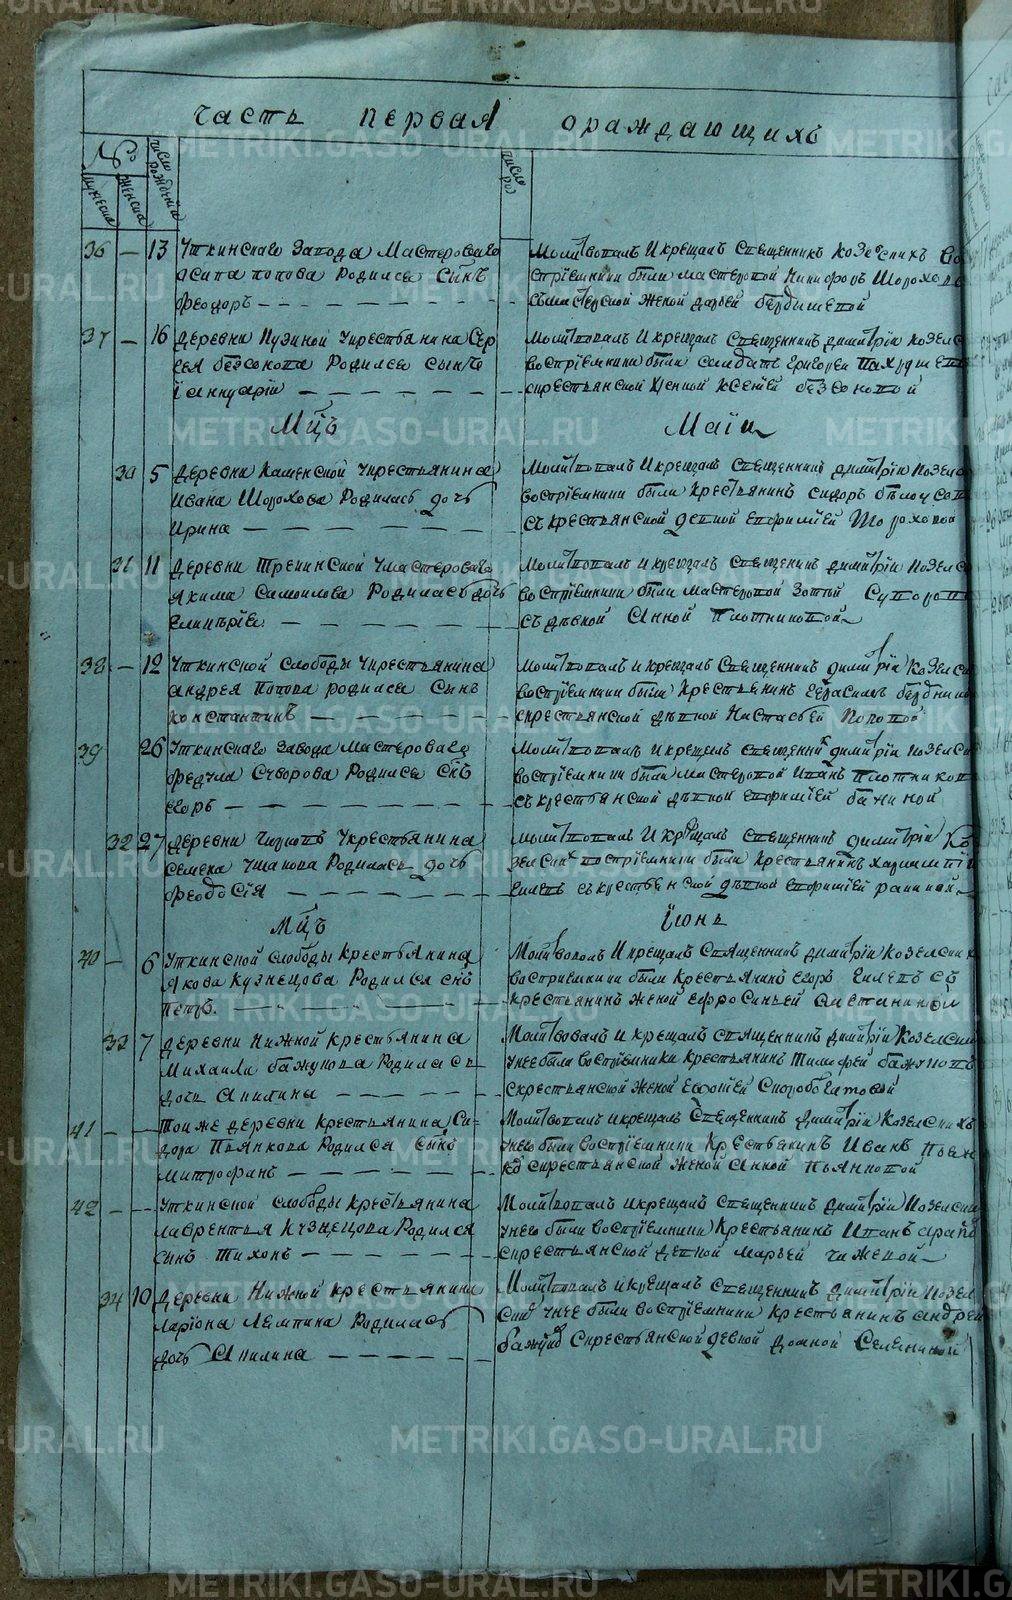 часть первая ораждающихъ
№
мужеска
женска
число рождения
число ро
36 — 13 Уткинскаго Завода Мастероваго
Осипа попова Родился Сынъ
Феодоръ
Молитвовалъ И крещалъ Священникъ Козелскихъ Во
стрiемники были мастеровой Никифоръ Шорохов
съмастерской женой дарьей бердышевой
37 — 16 деревни Пузиной Укрестьянина Сер
гея безсонова Родился сынъ
iаннуарiи
Молитвовалъ И крещалъ Священникъ димитрiи козелс
вострiемники были солдатъ Григореи
скрестьянской женой Ксенiей безсоновой
Мцъ Маiи
30 5 деревни Каменской Укрестьянина
Ивана Шорохова Родилась дочь
Ирина
Молитвовалъ И крещалъ Священникъ димитрiи козелс
вострiемники были крестьянинъ сидоръ бѣлоусов
съ крестьянской девкой Евфимiей Шороховой
31 11 деревни Трекинской Умастероваго
Якима Самоилова Родилась дочь
Гликѣрiя
Молитвовалъ И крещалъ Священникъ димитрiи козелс
вострiемники были мастеровой Зотей Суворов
съ дѣвкой Анной Плотниковой
38 — 12 Уткинской слободы Укрестьянина
андрея Попова родился Сынъ
константинъ
Молитвовалъ и крещалъ Священникъ димитрiи козелск
востпрiемники были крестьянинъ Герасимъ берднико
скрестьянской дѣвкой Настасьей Поповой
39 26 Уткинскаго Завода Мастероваго
Федула Суворова Родился Снъ
Егоръ
Молитвовалъ И крещалъ священникъ димитрiи козелск
востпрiемники были мастеровой Иванъ плотников
съ крестьянской дѣвкой Евфимiей бакиной
32 27 деревни Чизмовъ Укрестьянина
Семена Ушакова Родилась дочь
Феодосiя
Молитвовалъ И крещалъ священникъ димитрiи Ко
зелскихъ востпрiемники были крестьянинъ харлампiи
Гилевъ съ крестьянской дѣвкой Евфимiей
Мцъ Iюнь
40 — 6 Уткинской слободы крестьянина
Якова Кузнецова Родился снъ
Петръ.
Молитвовалъ И крещалъ священникъ димитрiи козелски
востприемники были крестьянинъ Егоръ Гилевъ съ
крестьянинъ женой ефросиньей
33 7 деревни Нижной крестьянина
Михаила бажукова Родилась
дочь Акилина
Молитвовалъ И крещалъ священникъ димитрiи Козелск
Унее были востприемники крестьянинъ Тимофей бажуковъ
скрестьянской женой Евфнiей Скоробогатовой
41 — — Той же деревни крестьянина Си-
дора Пьянкова Родился сынъ
митрофанъ
Молитвовалъ и крещалъ Священникъ димитрiи Козелскихъ
Унего были востпрiемники крестьянинъ Иванъ Пьян
ковъ скрестьянской женой Анной Пьянковой
42 — — Уткинской слободы крестьянина
лаврентья Кузнецова Родился
сынъ Тихонъ
Молитвовалъ и крещалъ Священникъ димитрiи козелски
Унего были востпрiемники крестьянинъ Иванъ
скрестьянской девкой марьей чижевой
34 10 деревни Нижной крестьянина
Ларiона Лемпина Родилась
дочь Акилина
Молитвовалъ и крещалъ Священникъ димитрiи козел
ски Унее были востпрiемники крестьянинъ андрей
бажуковъ Скрестьянской девкой домной Селениной
METRIKI.GASO-URAL.RU